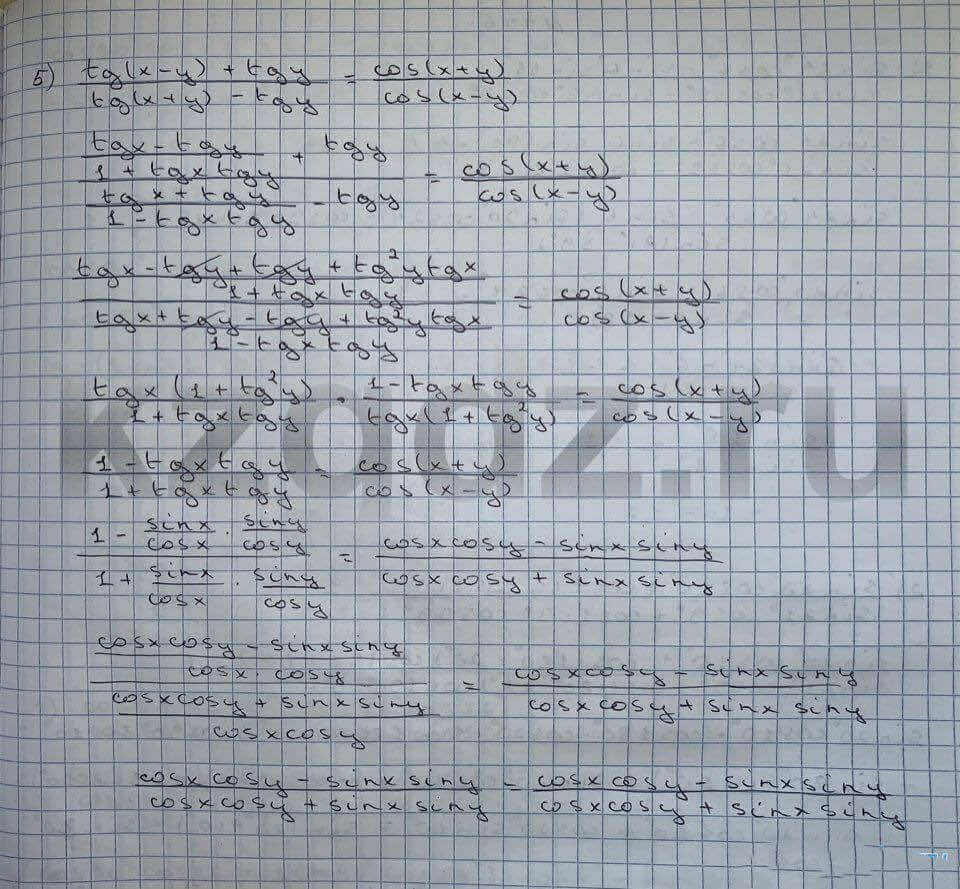 5) tg(x-y) + tgy / tg(x+y) - tgy = cos(x+y) / cos(x-y)
tgx - tgy / 1 + tgx tgy + tgy / tgx + tgy / 1 - tgx tgy - tgy = cos(x+y) / cos(x-y)
tgx - tgy + tgy + tg²y tgx / 1 + tgx tgy / tgx + tgy - tgy + tg²y tgx / 1 - tgx tgy = cos(x+y) / cos(x-y)
tgx (1 + tg²y) / 1 + tgx tgy · 1 - tgx tgy / tgx (1 + tg²y) = cos(x+y) / cos(x-y)
1 - tgx tgy / 1 + tgx tgy = cos(x+y) / cos(x-y)
1 - sinx / cosx · siny / cosy / 1 + sinx / cosx · siny / cosy = cosx cosy - sinx siny / cosx cosy + sinx siny
cosx cosy - sinx siny / cosx · cosy / cosx cosy + sinx siny / cosx cosy = cosx cosy - sinx siny / cosx cosy + sinx siny
cosx cosy - sinx siny / cosx cosy + sinx siny = cosx cosy - sinx siny / cosx cosy + sinx siny
kzgdz.ru